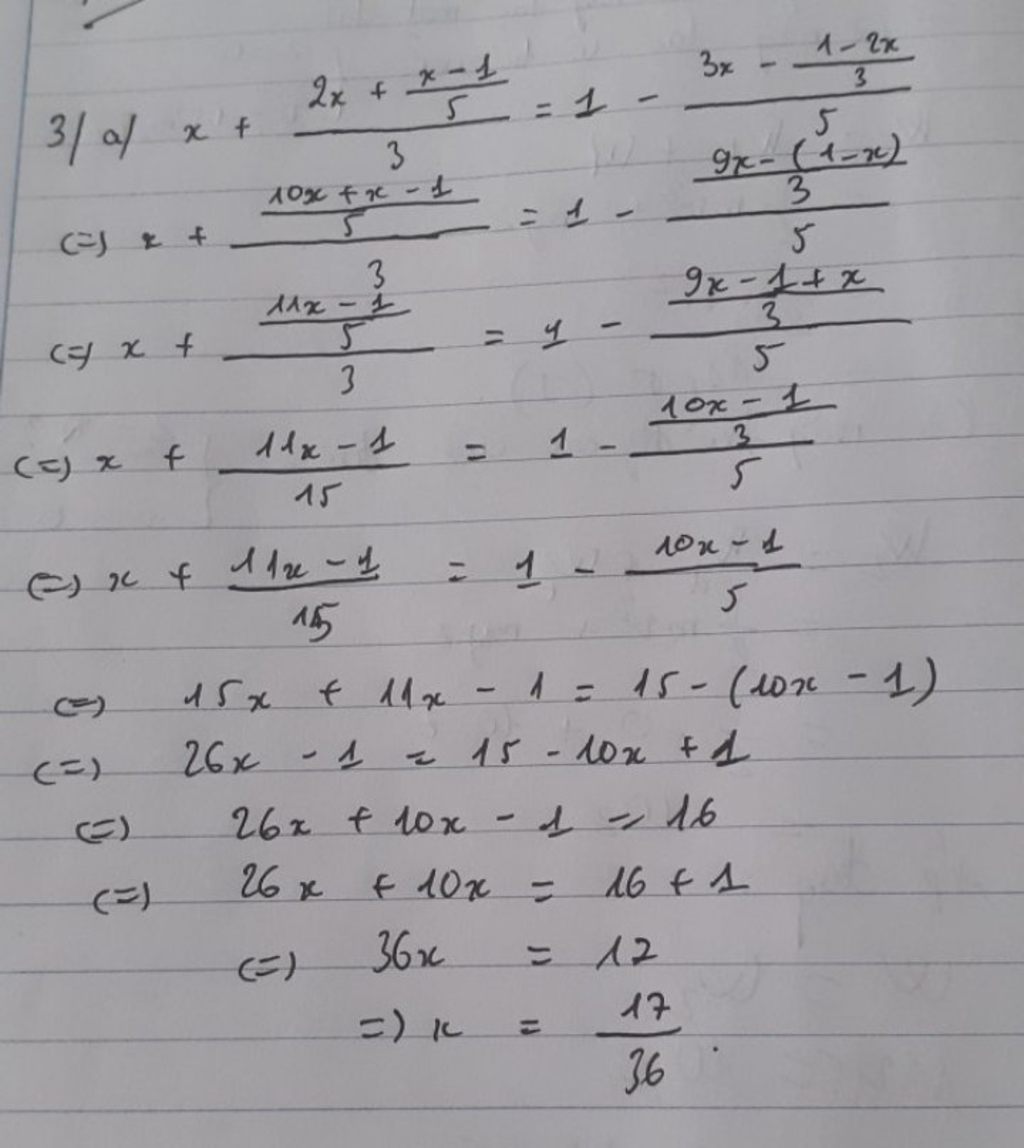 3/ a/ x + (2x + (x - 1)/5)/3 = 1 - (3x - (1 - 2x)/3)/5
(=) x + ((10x + x - 1)/5)/3 = 1 - ((9x - (1 - x))/3)/5
(=) x + ((11x - 1)/5)/3 = 1 - ((9x - 1 + x)/3)/5
(=) x + (11x - 1)/15 = 1 - ((10x - 1)/3)/5
(=) x + (11x - 1)/15 = 1 - (10x - 1)/5
(=) 15x + 11x - 1 = 15 - (10x - 1)
(=) 26x - 1 = 15 - 10x + 1
(=) 26x + 10x - 1 = 16
(=) 26x + 10x = 16 + 1
(=) 36x = 17
=) x = 17/36.